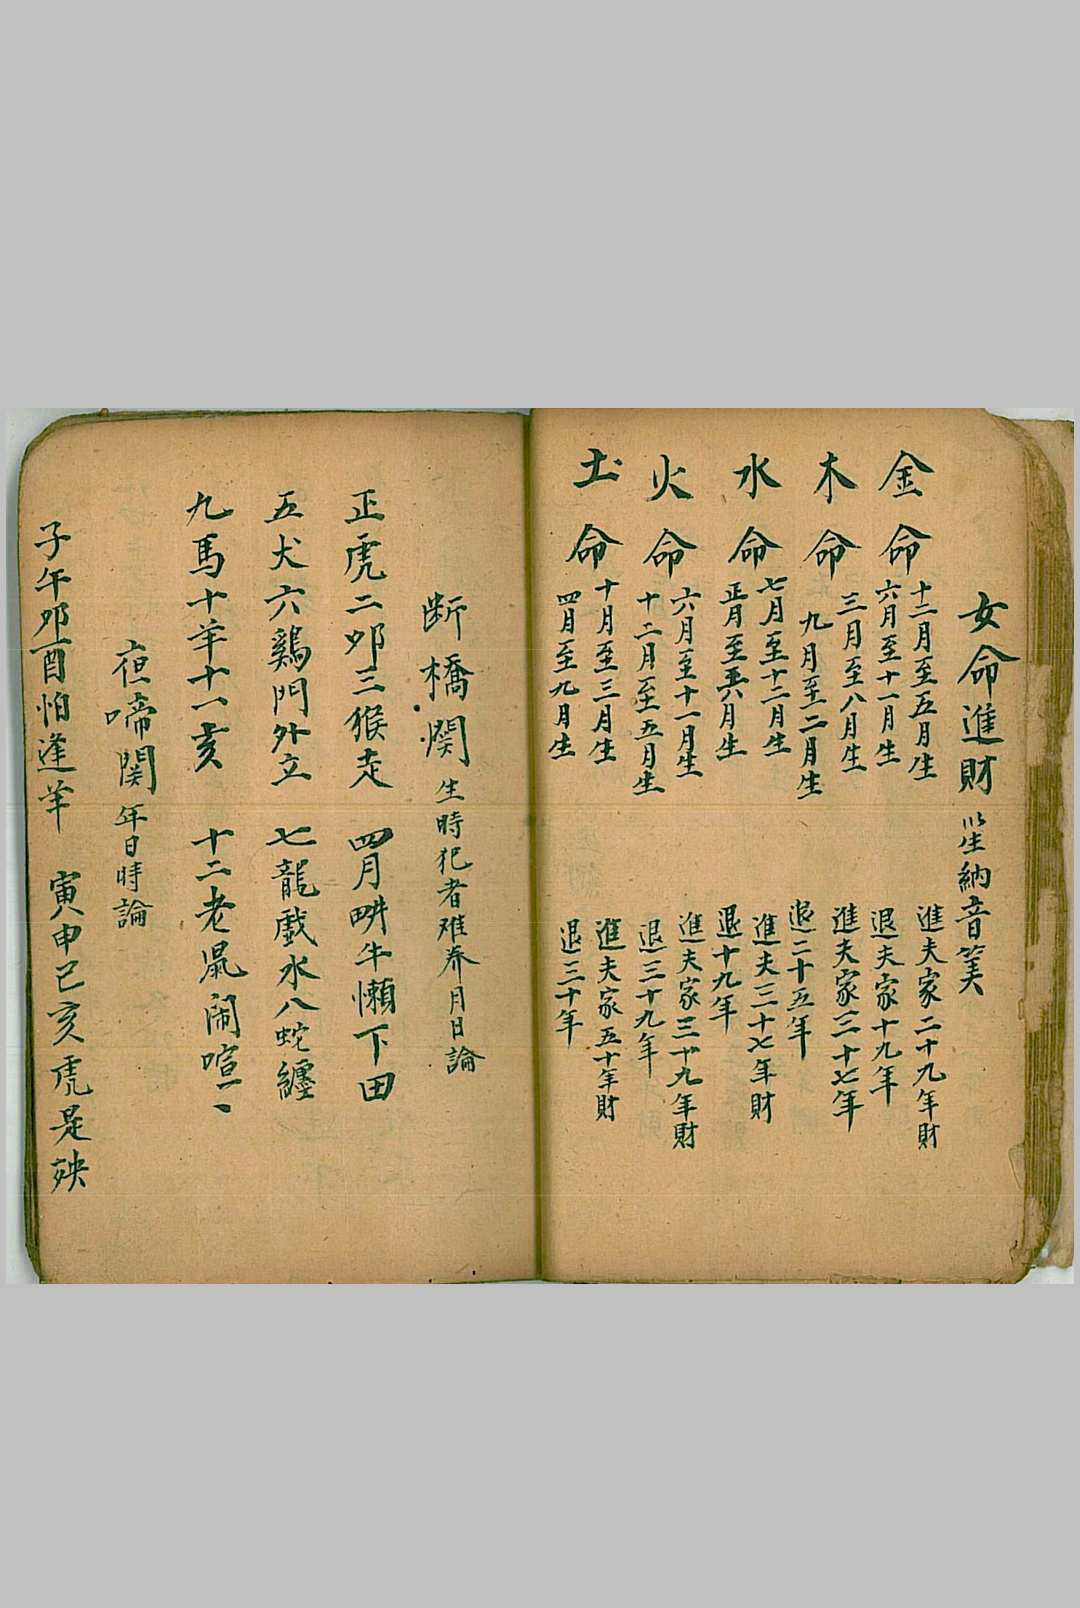 女命進財 坐納音筭
金命 十二月至五月生 進夫家二十九年財
六月至十一月生 退夫家十九年
木命 三月至八月生 進夫家三十七年
九月至二月生 退二十五年
水命 七月至十二月生 進夫三十七年財
正月至六月生 退十九年
火命 六月至十一月生 進夫家三十九年財
十二月至五月生 退三十九年
土命 十月至三月生 進夫家五十年財
四月至九月生 退三十年
断橋関 生時犯者难养月日論
正虎二卯三猴走 四月畊牛懶下田
五犬六鷄門外立 七龍戲水八蛇纏
九馬十羊十一亥 十二老鼠鬧喧喧
夜啼関 年日時論
子午卯酉怕逢羊 寅申巳亥虎是殃